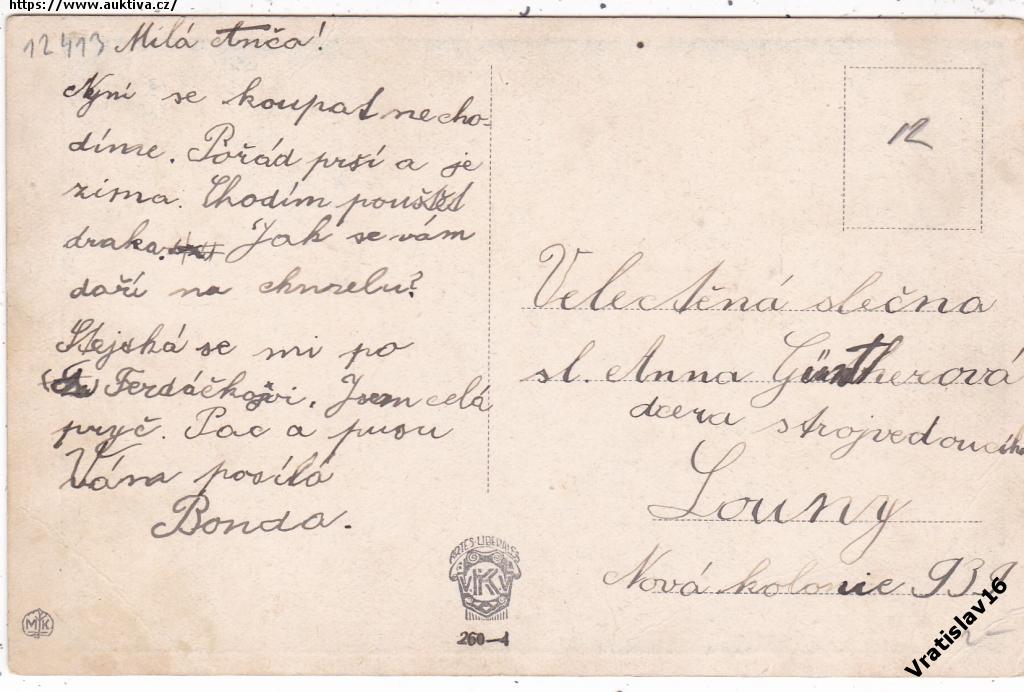 https://www.auktiva.cz/
12413 Milá Anča!
Nyní se koupat necho-
díme. Pořád prší a je
zima. Chodím pouštět
draka. Jak se vám
daří na chmelu?
Stejská se mi po
Ferdáčkovi. Jsem celá
pryč. Pac a pusu
Vám posílá
Bonda.
12
Velectěná slečna
sl. Anna Güntherová
dcera strojvedoucího
Louny
Nová kolonie
ARTES LIBERALES
V.K.K.V
260-4
MK
Vratislav16